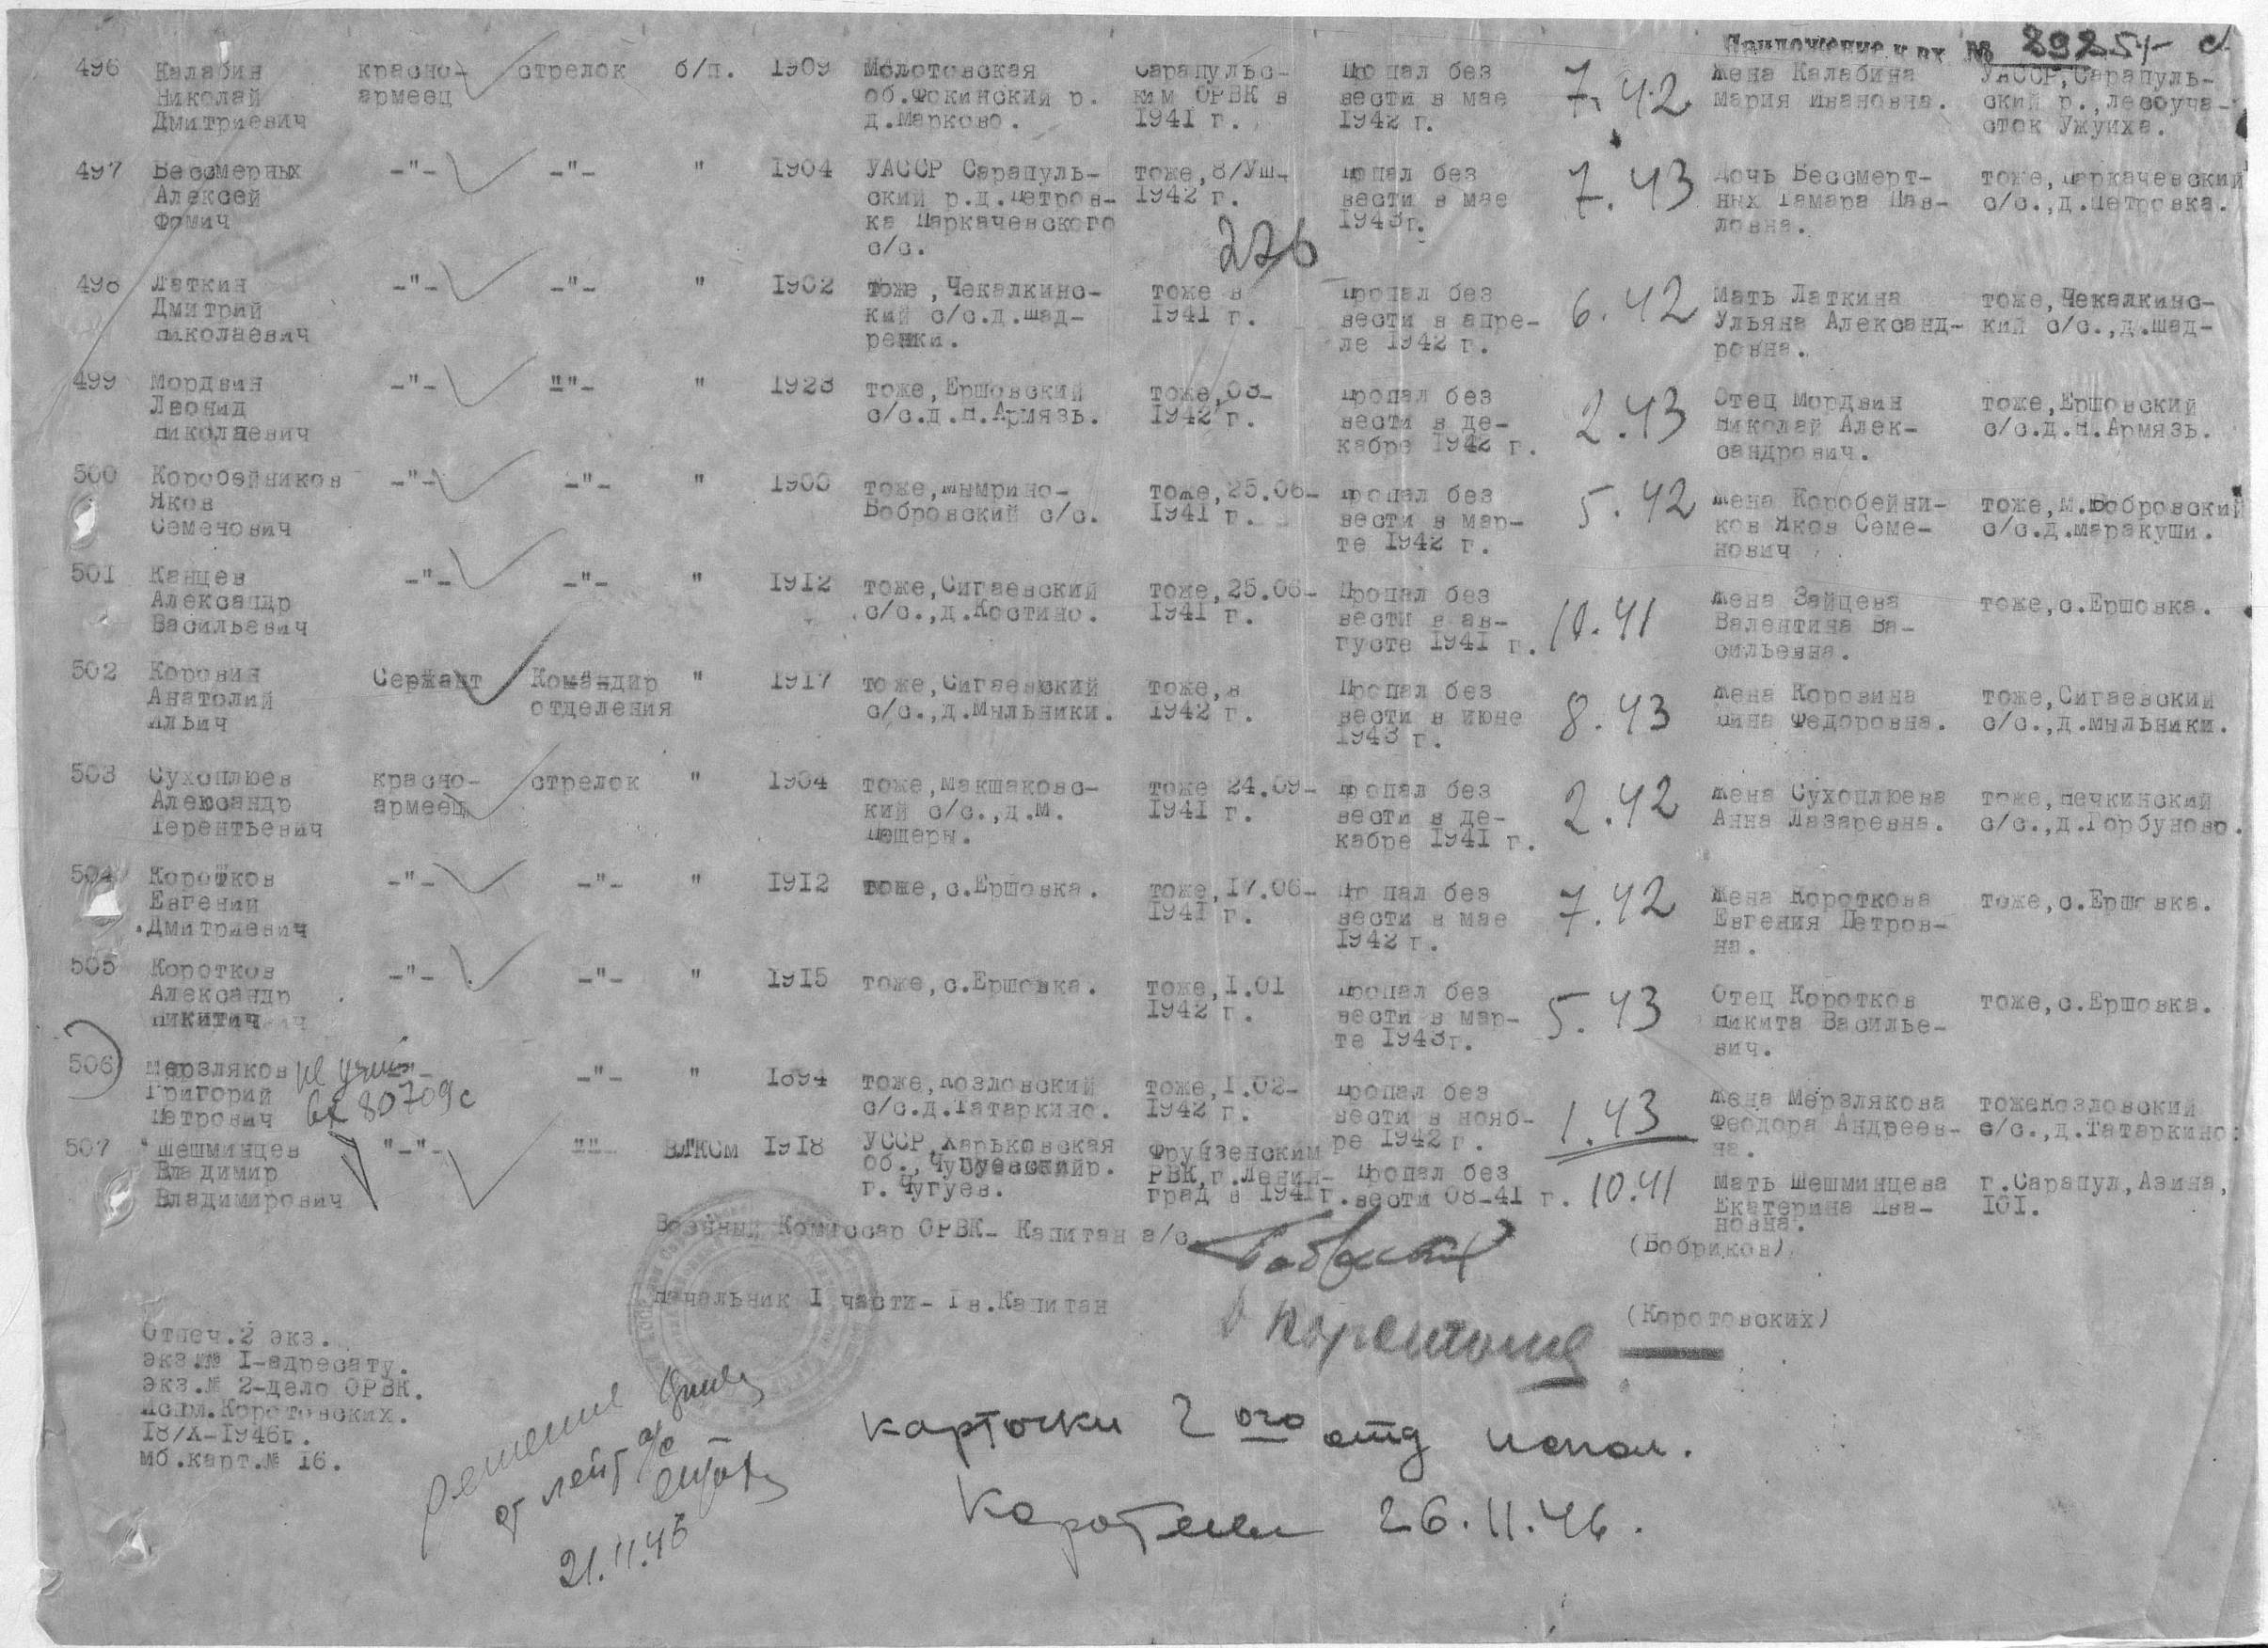 Приложение к вх № 89254 с
496 Калабин красно- стрелок б/п. 1909 Молотовская Сарапульс- Пропал без 7.42 Жена Калабина УАССР,Сарапуль-
Николай армеец об.Фокинский р. ким ОРВК в вести в мае Мария Ивановна. ский р.,лесоуча-
Дмитриевич д.Марково. 1941 г. 1942 г. сток Ужуиха.
497 Бессмерных -"- -"- " 1904 УАССР Сарапуль- тоже,8/Уш- Пропал без 7.43 Дочь Бессмерт- тоже,Паркачевский
Алексей ский р.д.Петров- 1942 г. вести в мае ных Тамара Пав- с/с.,д.Петровка.
Фомич ка Паркачевского 1943г. ловна.
с/с.
226
498 Латкин -"- -"- " 1902 тоже,Чекалкинс- тоже в Пропал без 6.42 Мать Латкина тоже,Чекалкинс-
Дмитрий кий с/с.д.Шад- 1941 г. вести в апре- Ульяна Александ- кий с/с.,д.Шад-
Николаевич ренки. ле 1942 г. ровна.
499 Мордвин -"- -"- " 1923 тоже,Ершовский тоже,08- Пропал без 2.43 Отец Мордвин тоже,Ершовский
Леонид с/с.д.Н.Армязь. 1942 г. вести в де- Николай Алек- с/с.д.Н.Армязь.
Николаевич кабре 1942 г. сандрович.
500 Коробейников -"- -"- " 1900 тоже,Мымрино- тоже,25.06- Пропал без 5.42 Жена Коробейни- тоже,М.Бобровский
Яков Бобровский с/с. 1941 г. вести в мар- ков Яков Семе- с/с.д.Маракуши.
Семенович те 1942 г. нович
501 Канцев -"- -"- " 1912 тоже,Сигаевский тоже,25.06- Пропал без 10.41 Жена Зайцева тоже,с.Ершовка.
Александр с/с.,д.Костино. 1941 г. вести в ав- Валентина Ва-
Васильевич густе 1941 г. сильевна.
502 Коровин Сержант Командир " 1917 тоже,Сигаевский тоже,в Пропал без 8.43 Жена Коровина тоже,Сигаевский
Анатолий отделения с/с.,д.Мыльники. 1942 г. вести в июне Нина Федоровна. с/с.,д.Мыльники.
Ильич 1943 г.
503 Сухоплюев красно- стрелок " 1904 тоже,Макшаковс- тоже 24.09- Пропал без 2.42 Жена Сухоплюева тоже,Нечкинский
Александр армеец кий с/с.,д.М. 1941 г. вести в де- Анна Лазаревна. с/с.,д.Горбуново.
Терентьевич Пещеры. кабре 1941 г.
504 Коротков -"- -"- " 1912 тоже,с.Ершовка. тоже,17.06- Пропал без 7.42 Жена Короткова тоже,с.Ершовка.
Евгений 1941 г. вести в мае Евгения Петров-
Дмитриевич 1942 г. на.
505 Коротков -"- -"- " 1915 тоже,с.Ершовка. тоже,I.01 Пропал без 5.43 Отец Коротков тоже,с.Ершовка.
Александр 1942 г. вести в мар- Никита Василье-
Никитич те 1943г. вич.
506 Мерзляков -"- -"- " 1894 тоже,Козловский тоже,I.02- Пропал без 1.43 Жена Мерзлякова тоже Козловский
Григорий с/с.д.Татаркино. 1942 г. вести в нояб- Феодора Андреев- с/с.,д.Татаркино.
Петрович вх 80709с ре 1942 г. на.
507 Шешминцев "-"- -"- ВЛКСМ 1918 УССР,Харьковская Фрунзенским Пропал без 10.41 Мать Шешминцева г.Сарапул,Азина,
Владимир об.,Чугуевский р. РВК,г.Ленин- вести 08-41 г. Екатерина Ива- 101.
Владимирович г.Чугуев. град в 1941г. новна.
Военный Комиссар ОРВК- Капитан а/с (Бобриков)
Начальник I части- Гв.Капитан (Коротовских)
Отпеч.2 экз.
экз.№ I-адресату.
экз.№ 2-дело ОРВК.
Исп.м.Коротовских.
18/X-1946г.
мб.карт.№ 16.
карточки 2 ого отд испол.
26.11.46.
21.11.46